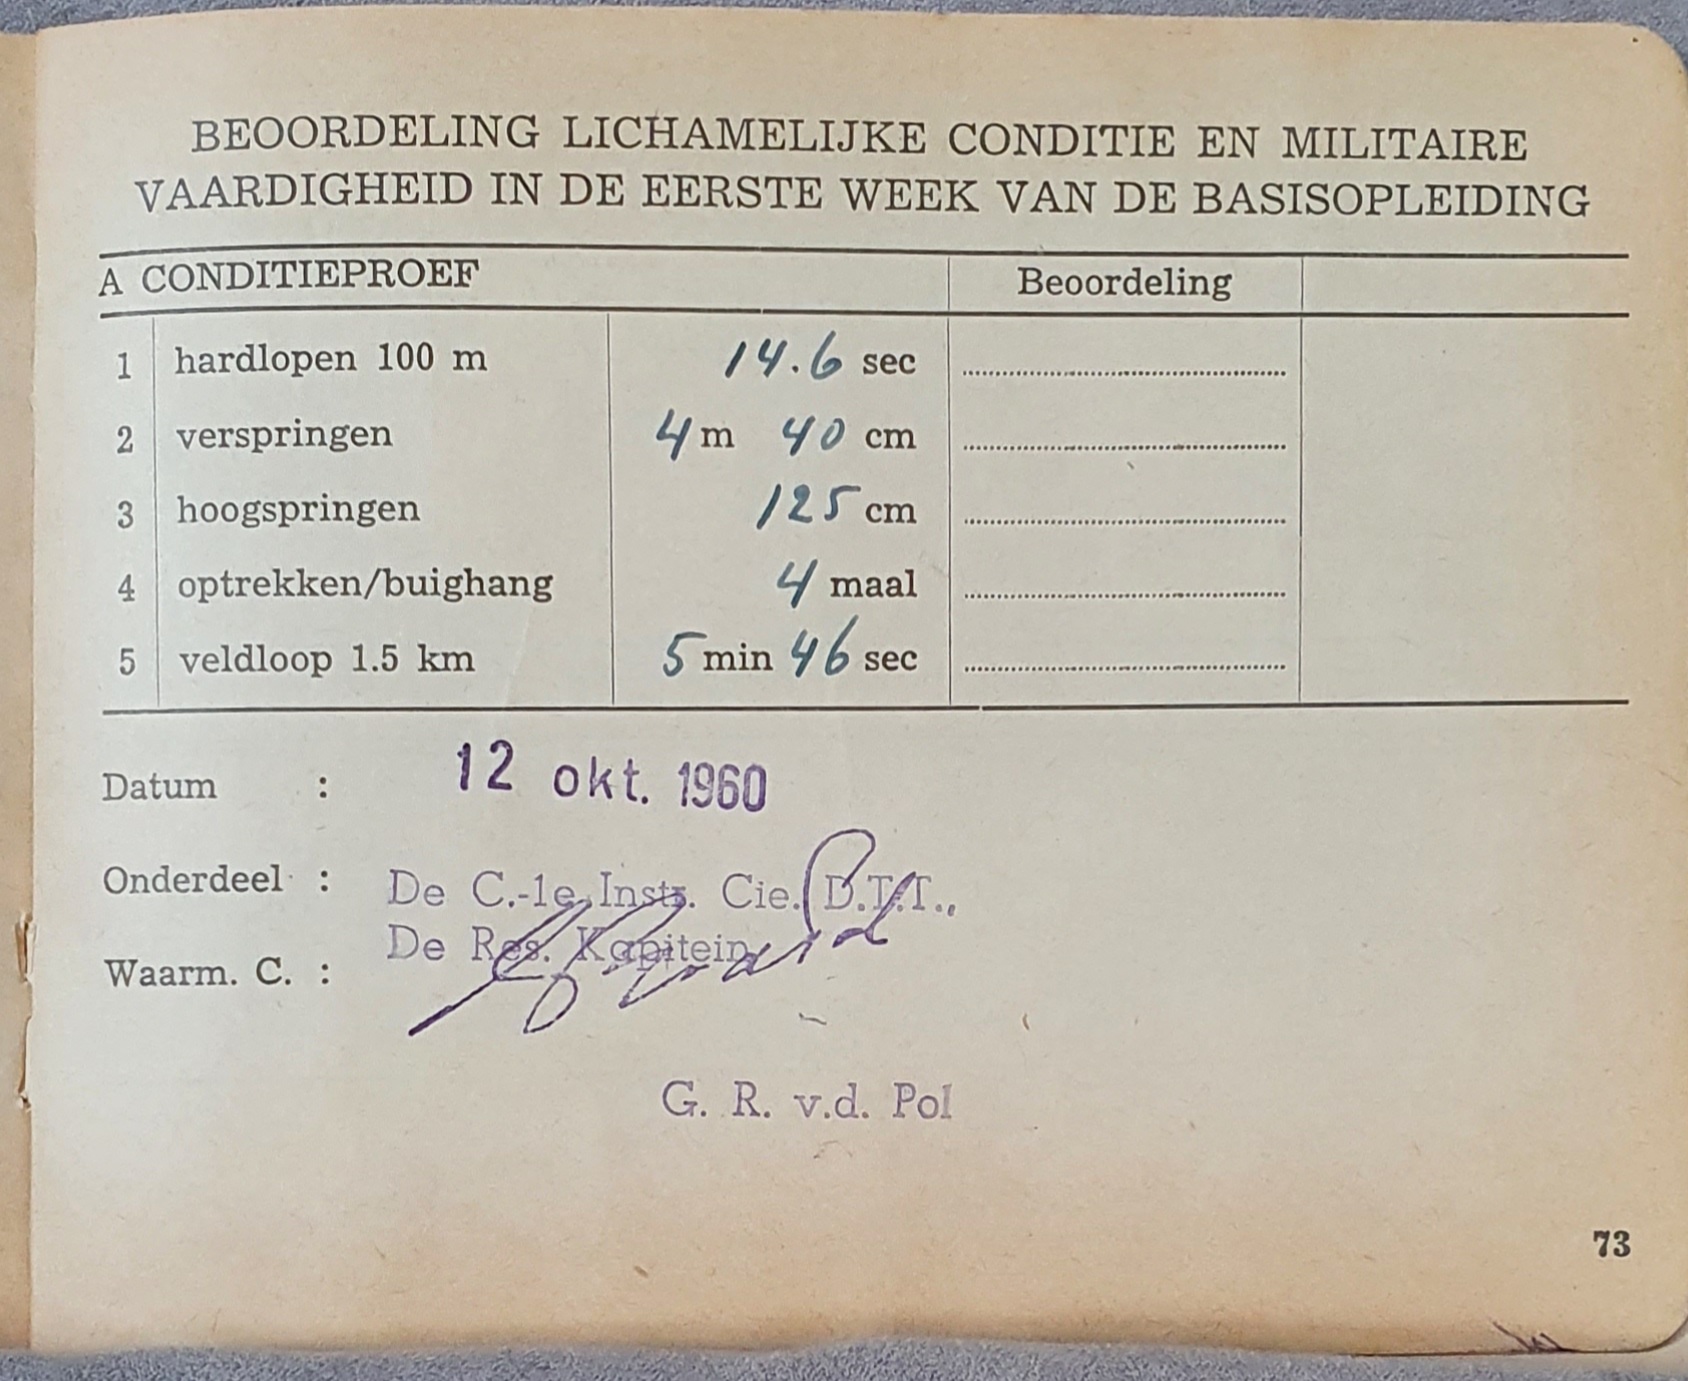 BEOORDELING LICHAMELIJKE CONDITIE EN MILITAIRE
VAARDIGHEID IN DE EERSTE WEEK VAN DE BASISOPLEIDING
A CONDITIEPROEF Beoordeling
1 hardlopen 100 m 14.6 sec
2 verspringen 4 m 40 cm
3 hoogspringen 125 cm
4 optrekken/buighang 4 maal
5 veldloop 1.5 km 5 min 46 sec
Datum : 12 okt. 1960
Onderdeel : De C.-1e Instr. Cie. D.T.T.,
De Res. Kapitein,
Waarm. C. :
G. R. v.d. Pol
73